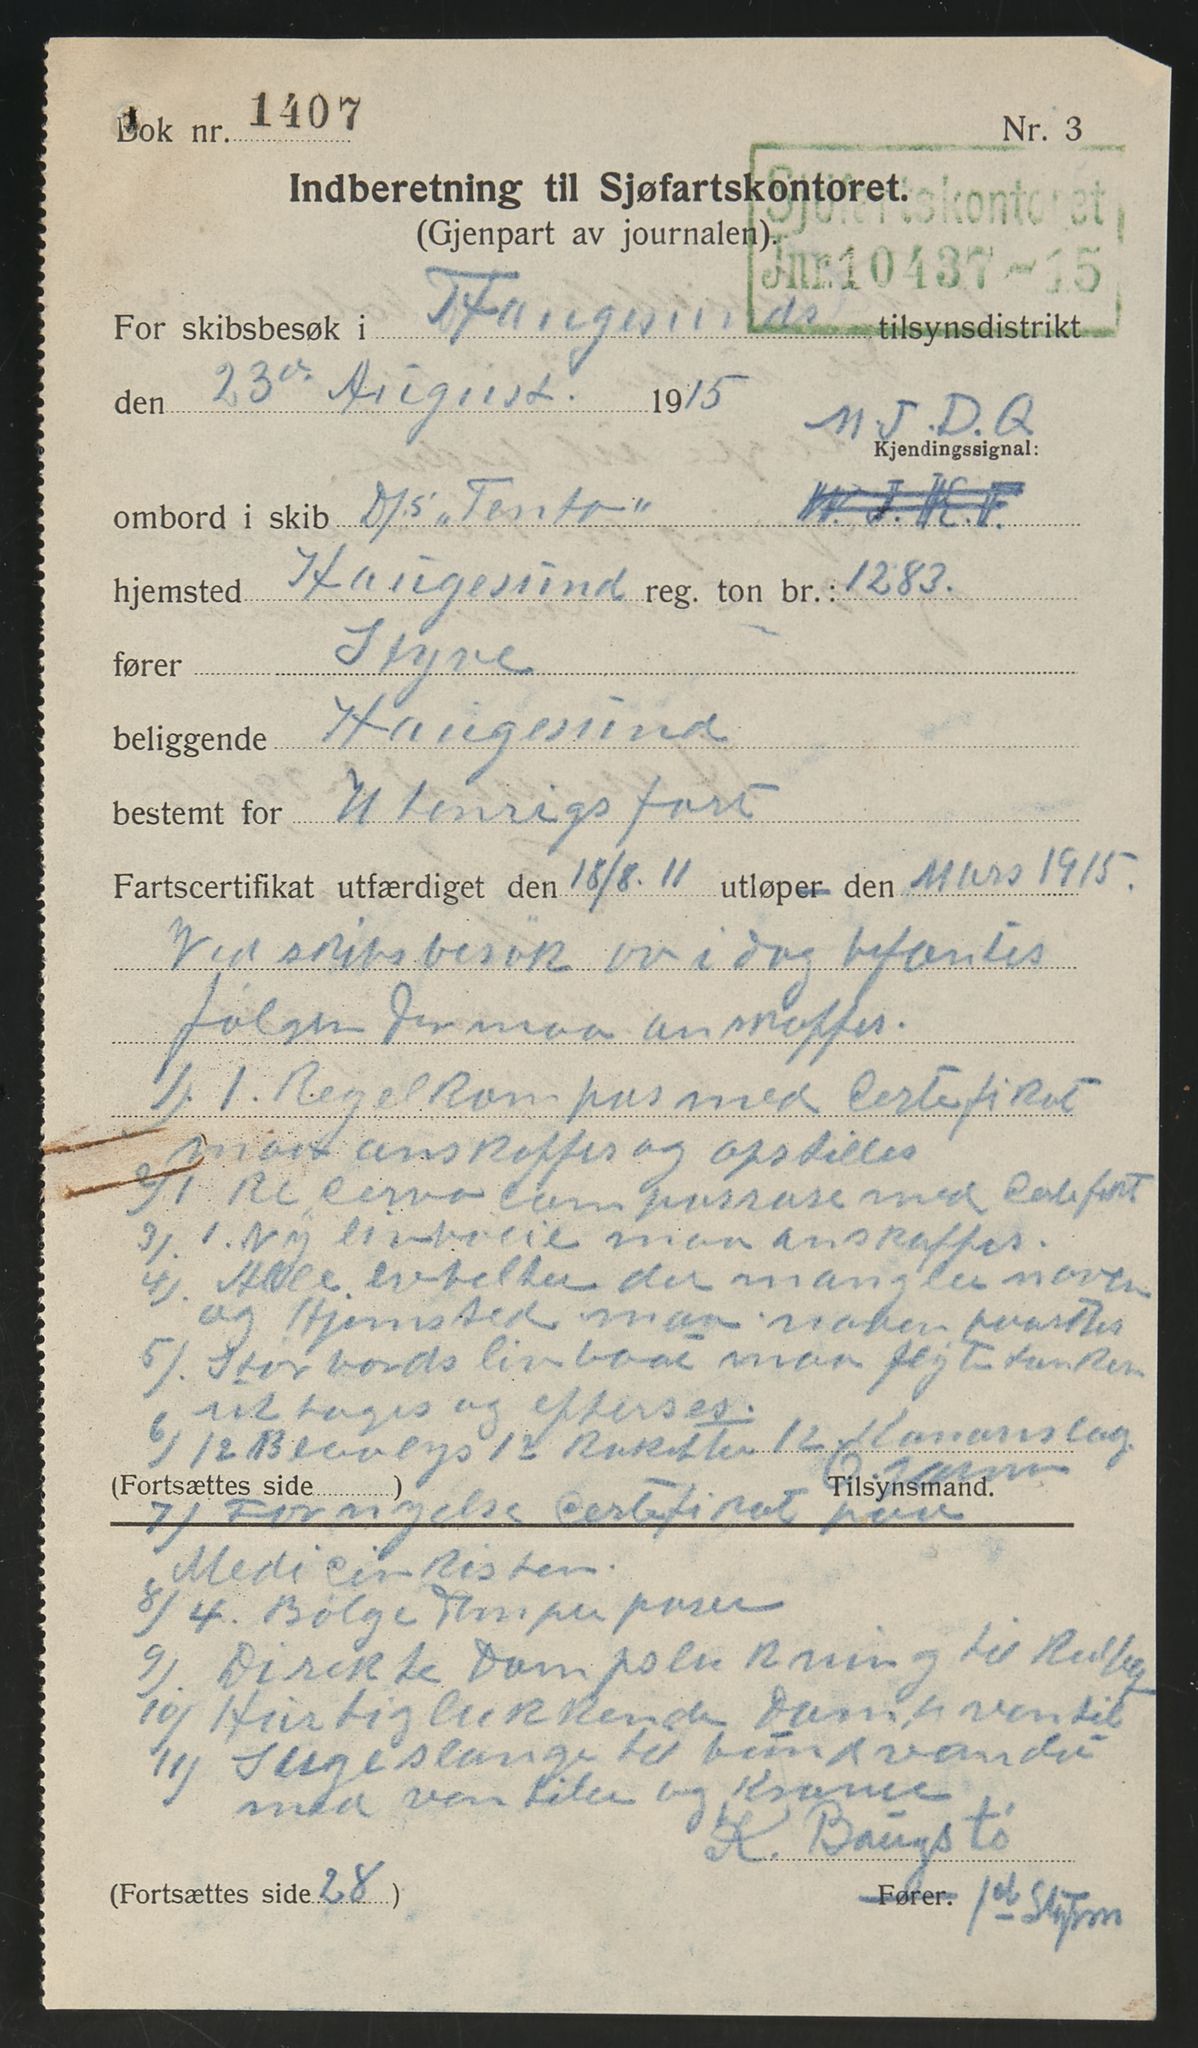 Bok nr. 1407
Nr. 3
Indberetning til Sjøfartskontoret.
(Gjenpart av journalen).
Sjøfartskontoret
Jnr. 10437 - 15
For skibsbesøk i Haugesunds tilsynsdistrikt
den 23de August. 1915
M.J.D.Q
Kjendingssignal:
ombord i skib D/S "Tento"
hjemsted Haugesund reg. ton br.: 1283.
fører Styve
beliggende Haugesund
bestemt for Utenrigsfart
Fartscertifikat utfærdiget den 18/8. 11 utløper den Mars 1915.
Ved skibsbesök av i dag befantes
følgen der maa anskaffes.
1). 1. Regelkompas med Certefikat
maa anskaffes og opstilles
2) 1 Recerva compasrose med
3). 1. Ny livboie maa anskaffes.
4). Alle livbelter der mangler naven
og Hjemsted maa naven paasettes
5). Storbords livbaat maa flytetanken
uttages og efterses.
6) 12 Blaalys 12 Raketter 12 Kanonslag.
(Fortsættes side )
Tilsynsmand.
7) Fornyelse Certefikat paa
Medicinkisten.
8) 4. Bölgedemper poser
9). Direkte Dampslukning til
10) Hurtiglukkende Dampventil
11) Sugeslange til bundvandet
med ventiler og Krane
K. Baugstö
(Fortsættes side 28 )
Fører. 1st Styrm